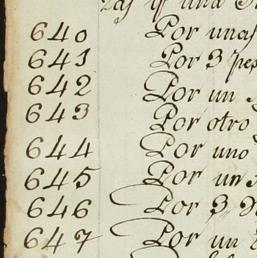 una
640 Por unas
641 Por 3
642 Por un
643 Por otro
644 Por uno
645 Por un
646 Por 3
647 Por un